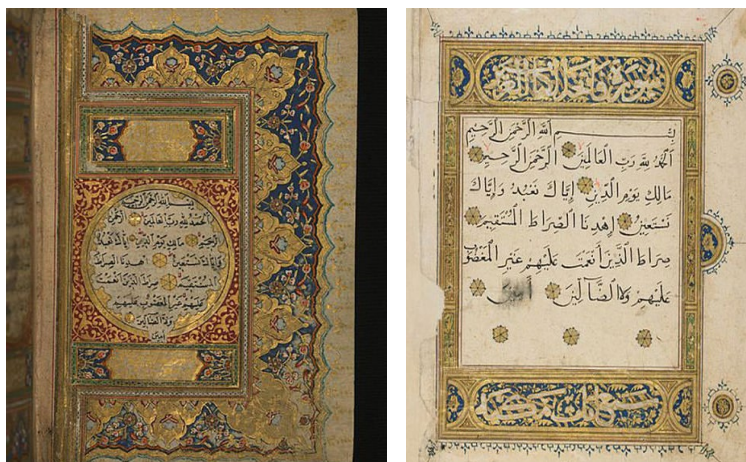 بسم الله الرحمن الرحيم
الحمد لله رب العالمين الرحمن
الرحيم مالك يوم الدين إياك نعبد
وإياك نستعين اهدنا الصراط
المستقيم صراط الذين أنعمت
عليهم غير المغضوب عليهم
ولا الضالين
آمين
سورة فاتحة الكتاب
بسم الله الرحمن الرحيم
الحمد لله رب العالمين الرحمن الرحيم
مالك يوم الدين إياك نعبد وإياك
نستعين اهدنا الصراط المستقيم
صراط الذين أنعمت عليهم غير المغضوب
عليهم ولا الضالين آمين